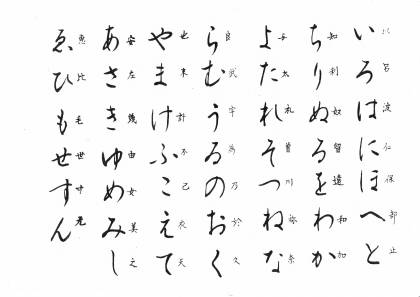 いろはにほへと
以呂波仁保部止
ちりぬるをわか
知利奴留遠和加
よたれそつねな
与太礼曽川祢奈
らむうゐのおく
良武宇為乃於久
やまけふこえて
也末計不己衣天
あさきゆめみし
安左幾由女美之
ゑひもせすん
恵比毛世寸无